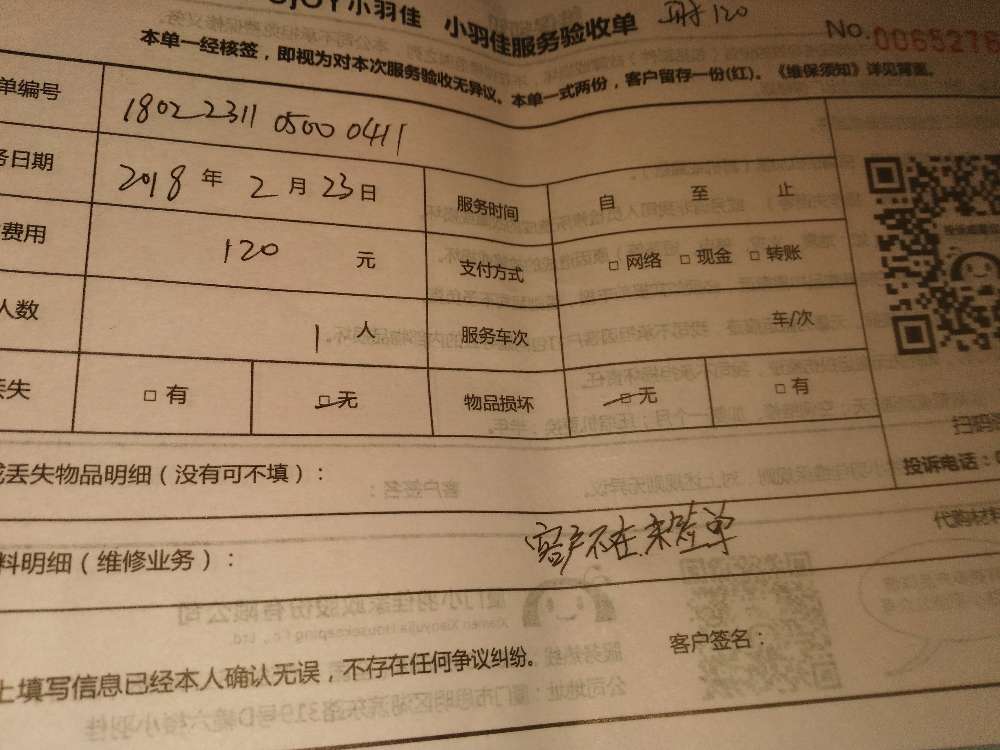 小羽佳 小羽佳服务验收单
No. 0065276
本单一经核签，即视为对本次服务验收无异议。本单一式两份，客户留存一份(红)。《维保须知》详见背面。
单编号 18022311 0500 0411
务日期 2018 年 2 月 23 日 服务时间 自 至 止
费用 120 元 支付方式 □ 网络 □ 现金 □ 转账
人数 1 人 服务车次 车/次
丢失 □ 有 □ 无 物品损坏 □ 无 □ 有
投诉电话：0
丢失物品明细（没有可不填）：
代购材料
料明细（维修业务）：
客户不在未签单
上填写信息已经本人确认无误，不存在任何争议纠纷。 客户签名：